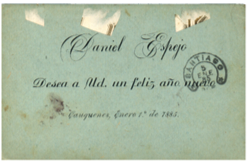 Daniel Espejo
Desea a Ud. un feliz año nuevo
Cauquenes, Enero 1.º de 1887.
SANTIAGO
5
ENE